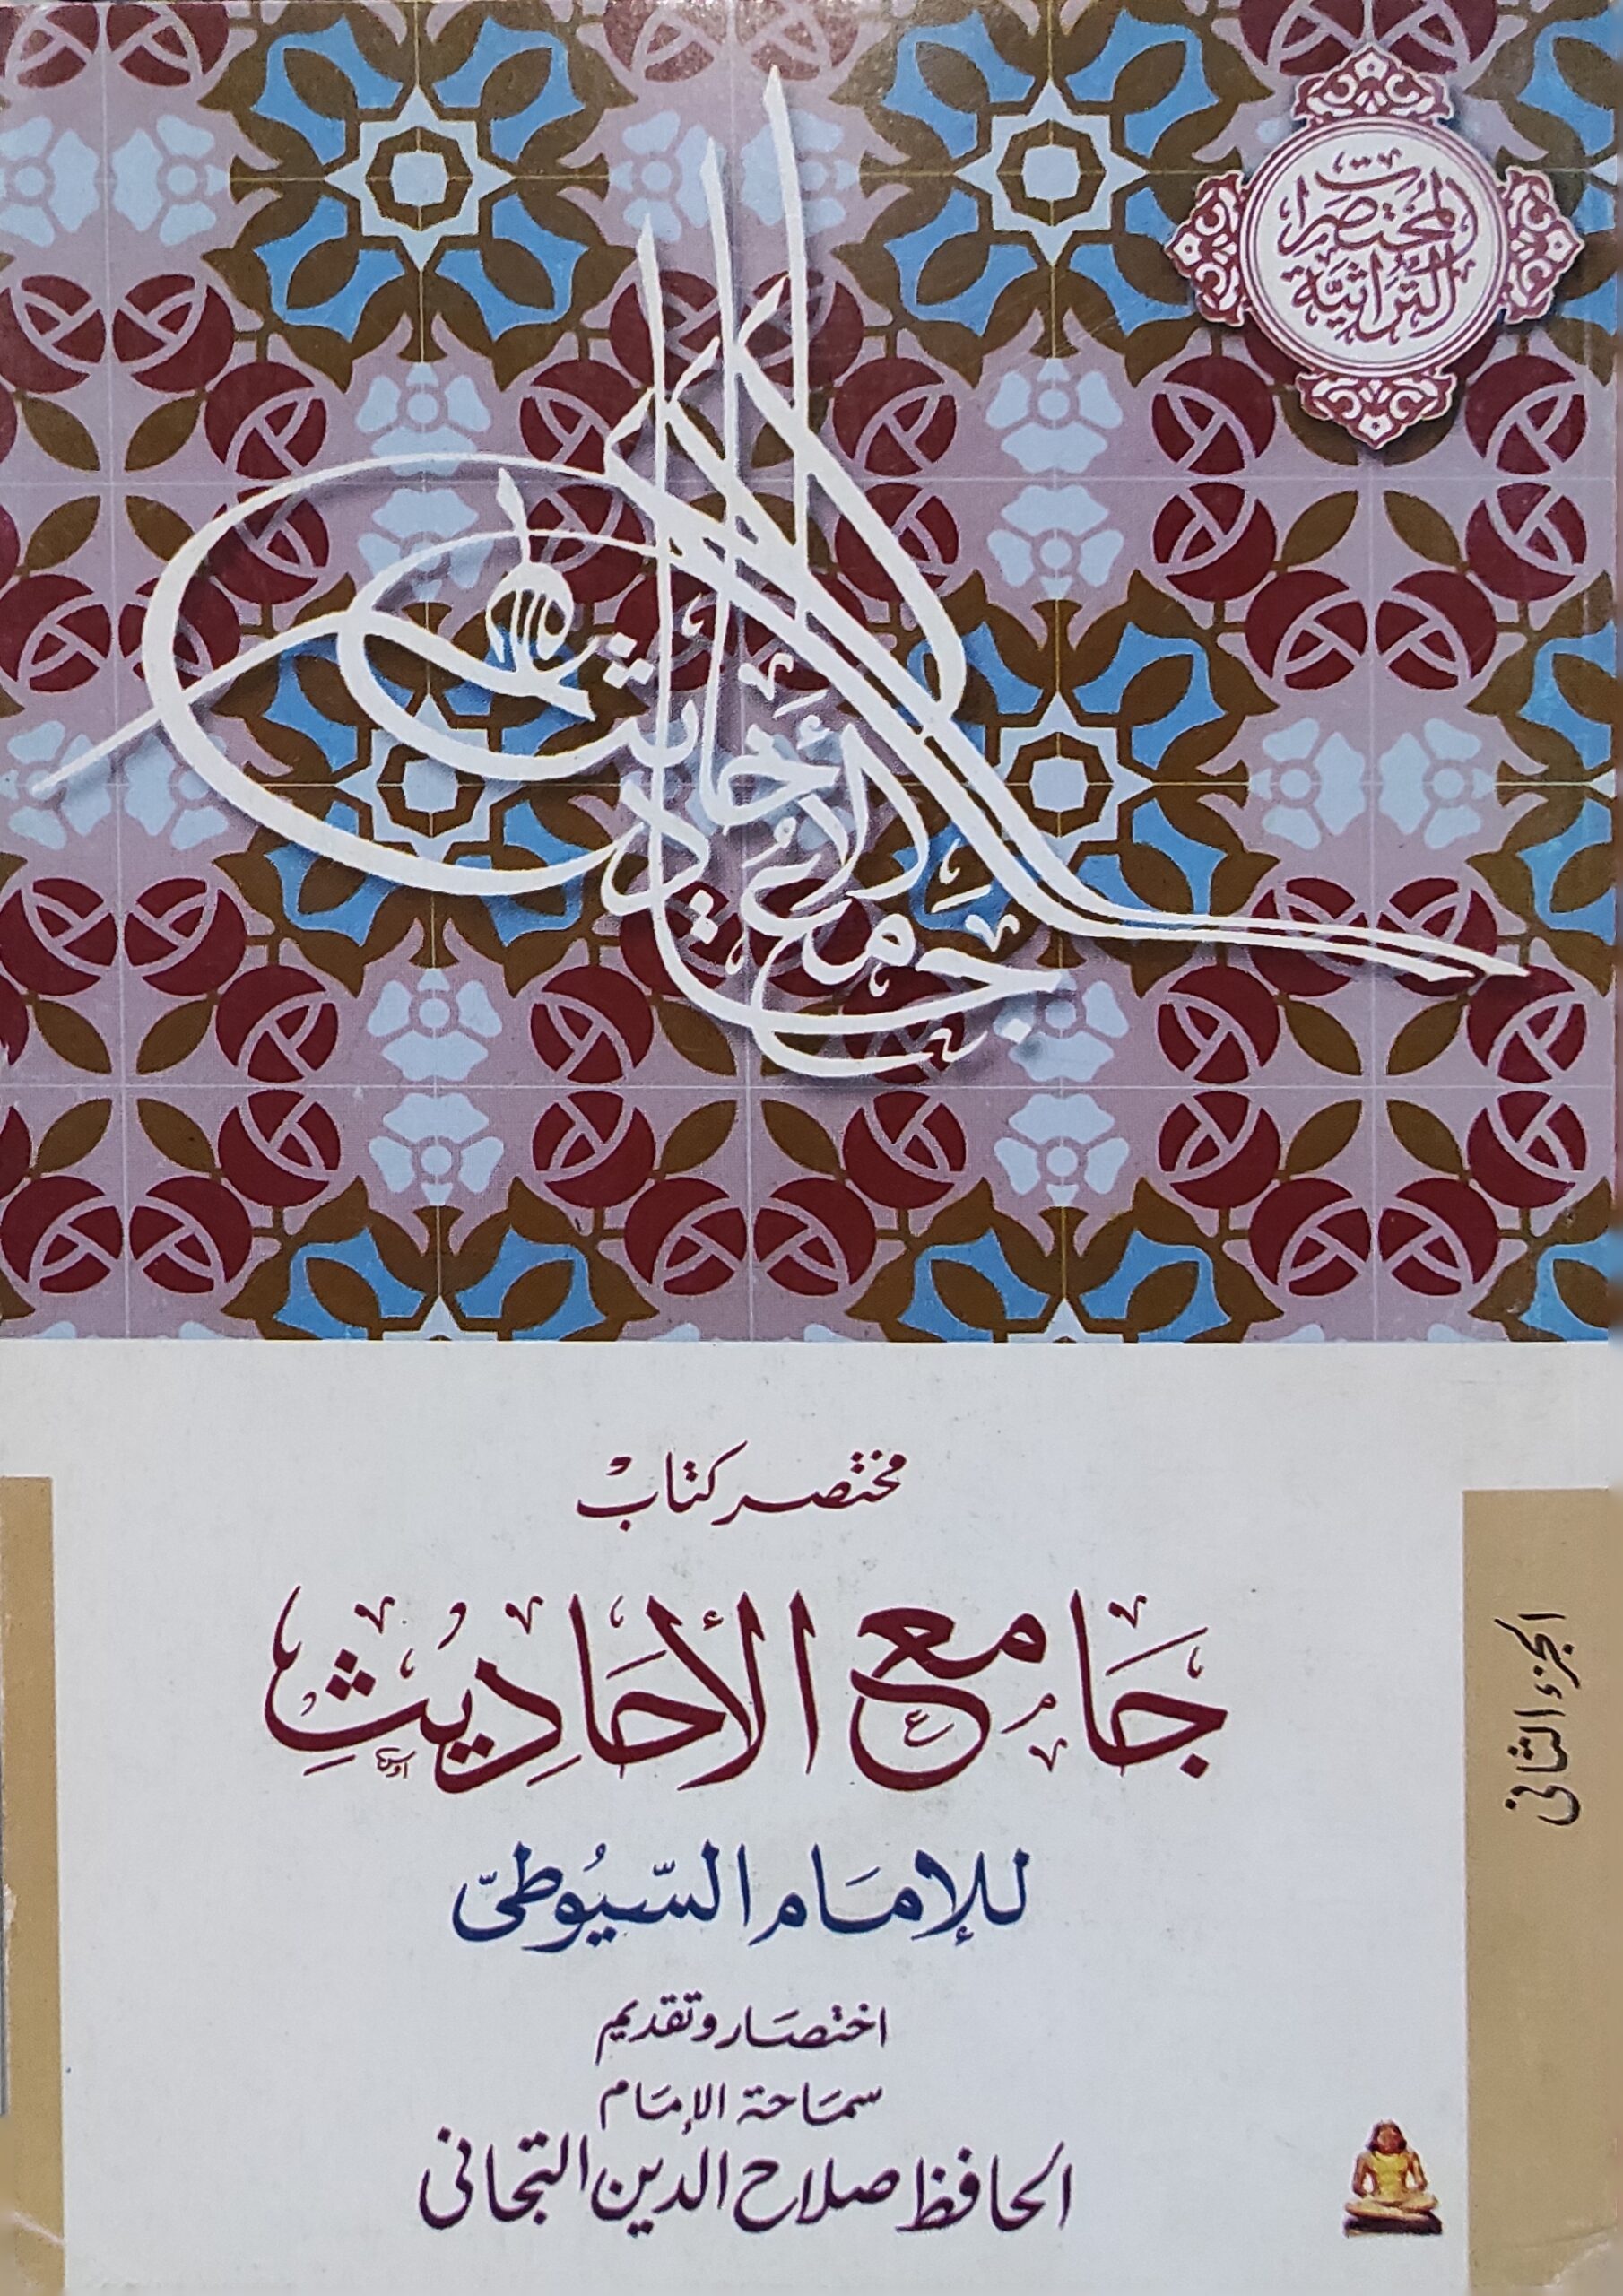 المختصرات
التراثية
جامع الأحاديث
مختصر كتاب
جَامع الأحَادِيْثِ
للإمَام السّيُوطىّ
اختصَار وتقديم
سمَاحة الإمَام
الحافظ صلاح الدين التجانى
الجزء الثانى